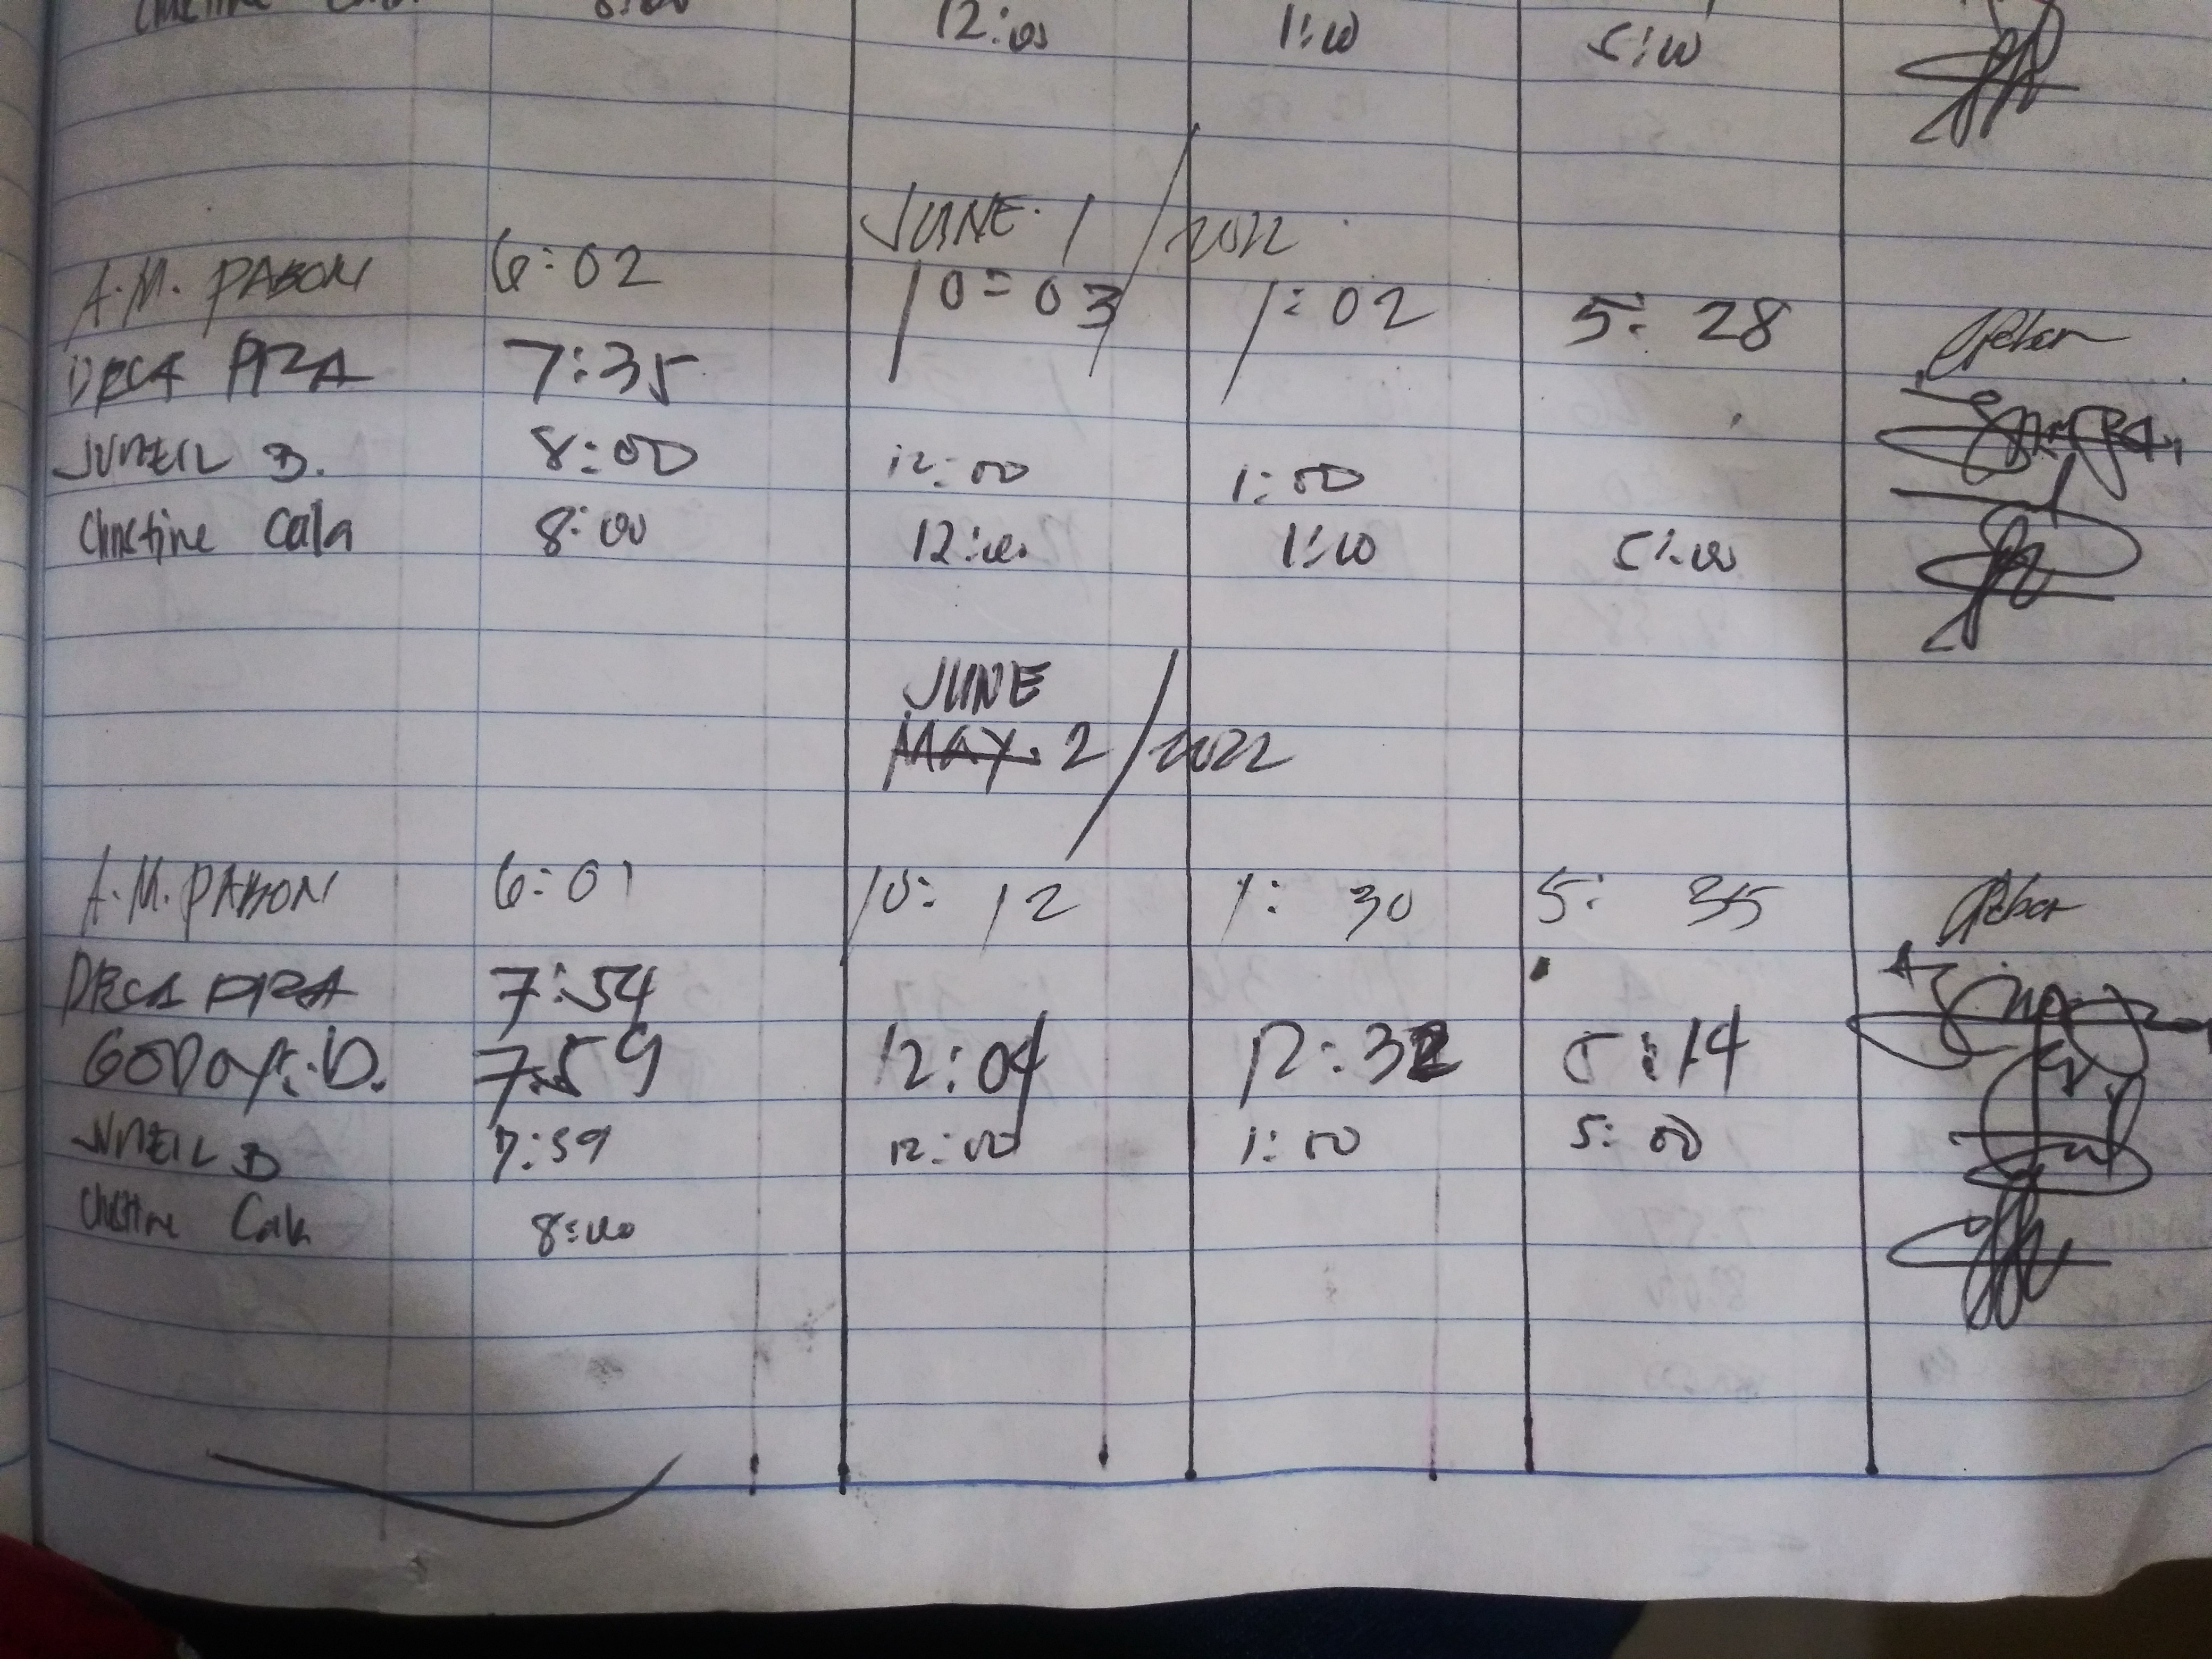 Christine 8:00 12:00 1:00 5:00
JUNE 1 / 2022
A.M. PABON 6:02 10:03 1:02 5:28
DECA PIZA 7:35
JUNEIL B. 8:00 12:00 1:00
Christine Cala 8:00 12:00 1:00 5:00
JUNE
MAY. 2 / 2022
A.M. PABON 6:01 10:12 1:30 5:35
DECA PIZA 7:54
GODOY: D. 7:59 12:04 12:32 5:14
JUNEIL B 7:59 12:00 1:00 5:00
Christine Cala 8:00